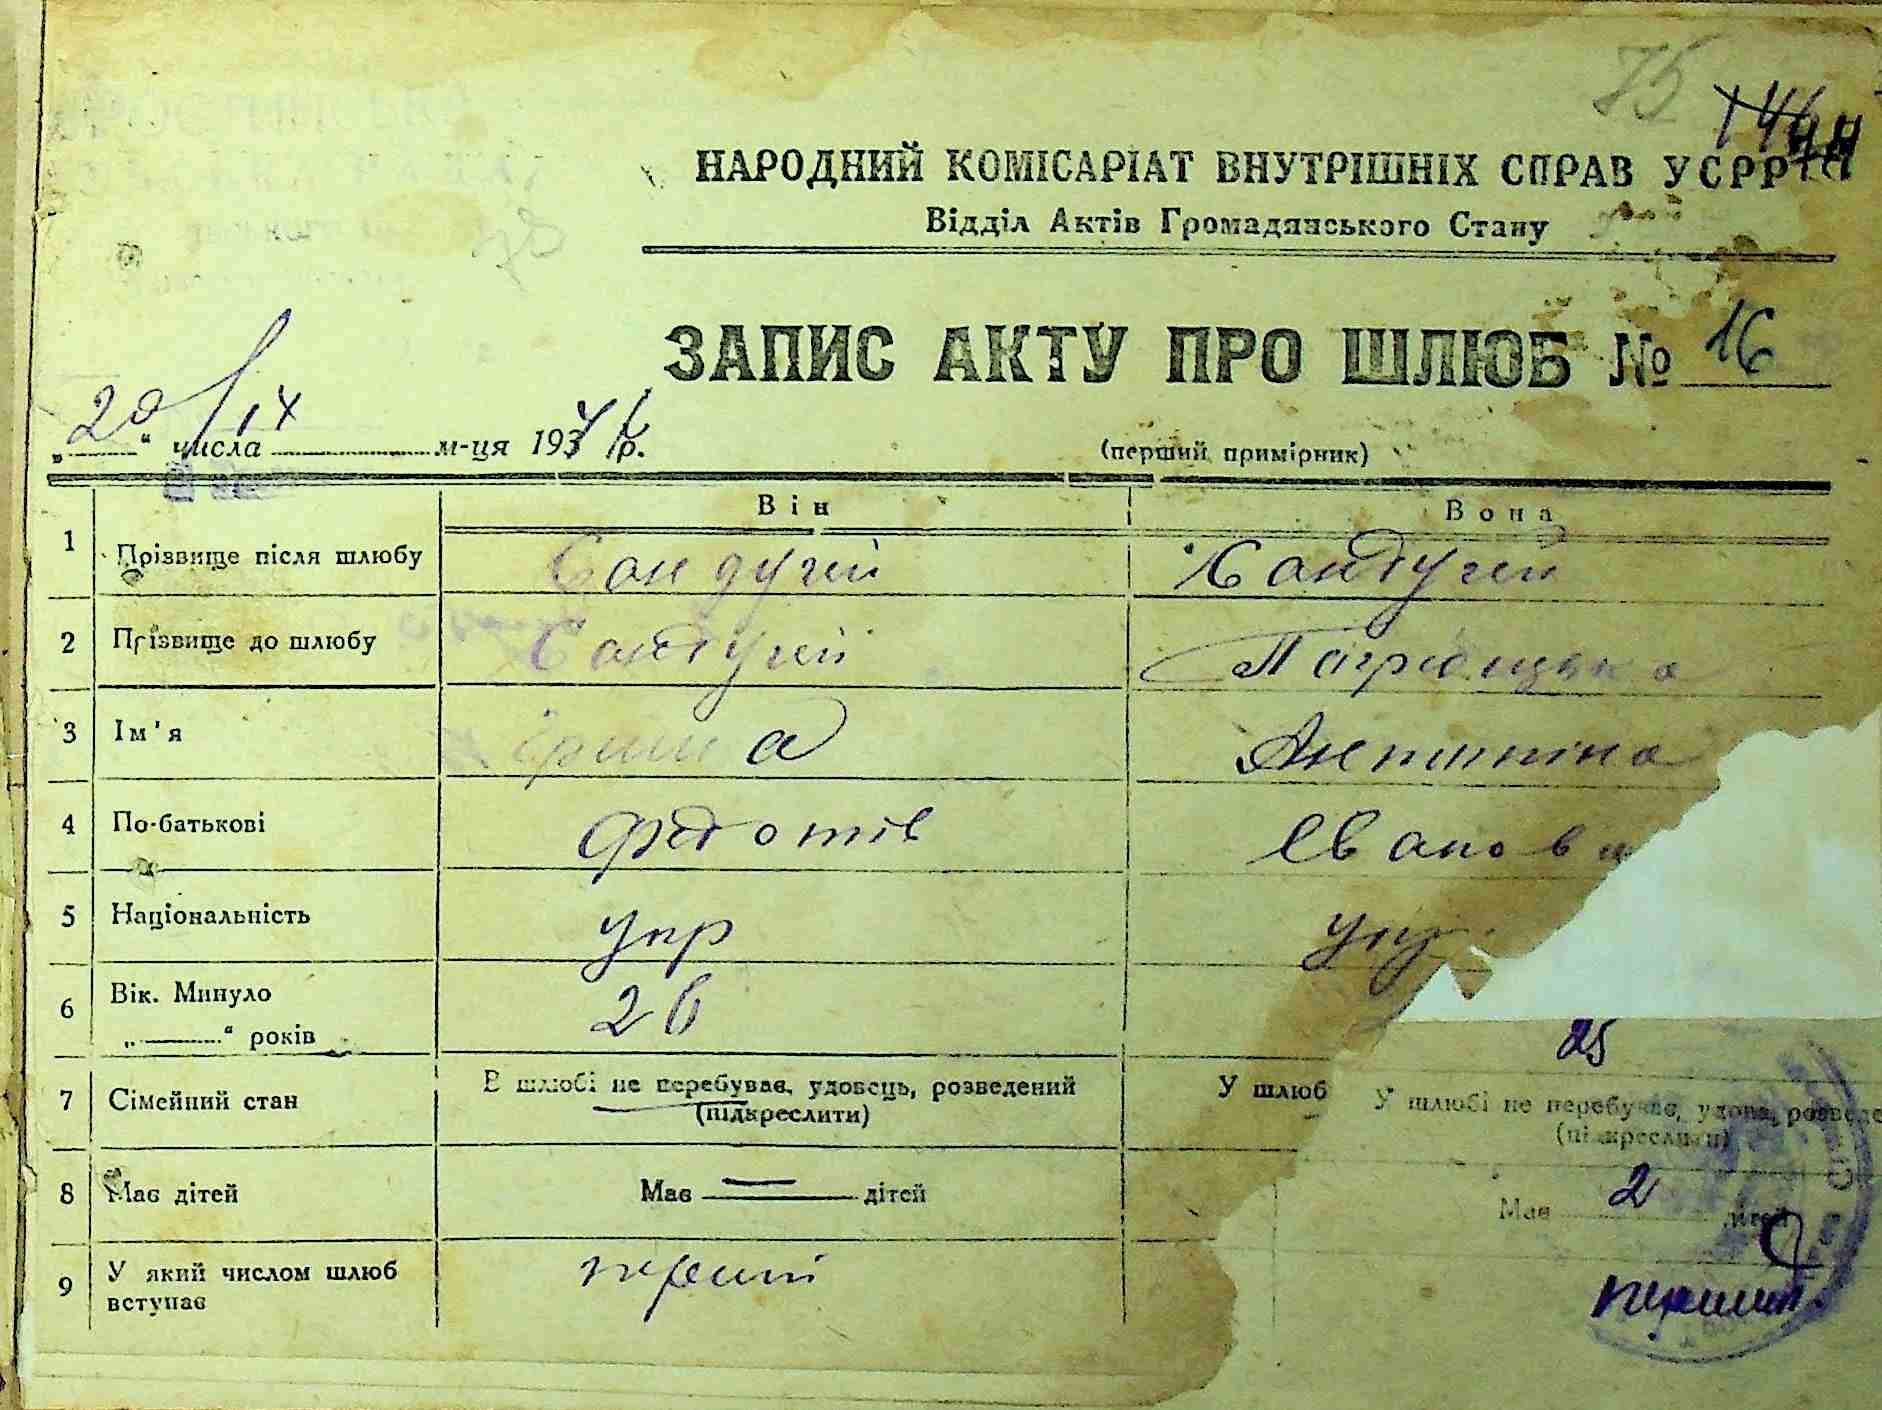 75
НАРОДНИЙ КОМІСАРІАТ ВНУТРІШНІХ СПРАВ УСРР
Відділ Актів Громадянського Стану
ЗАПИС АКТУ ПРО ШЛЮБ № 16
„20“ числа IX м-ця 193 р.
(перший примірник)
Він Вона
1 Прізвище після шлюбу Сандугей Сандугей
2 Прізвище до шлюбу Сандугей
3 Ім'я
4 По-батькові Федотів
5 Національність укр укр
6 Вік. Минуло „——“ років 26 25
7 Сімейний стан В шлюбі не перебував, удовець, розведений (підкреслити) У шлюб У шлюбі не перебуває, удова, розведе (підкреслити)
8 Має дітей Має — дітей Має 2 дітей
9 У який числом шлюб вступає перший перший